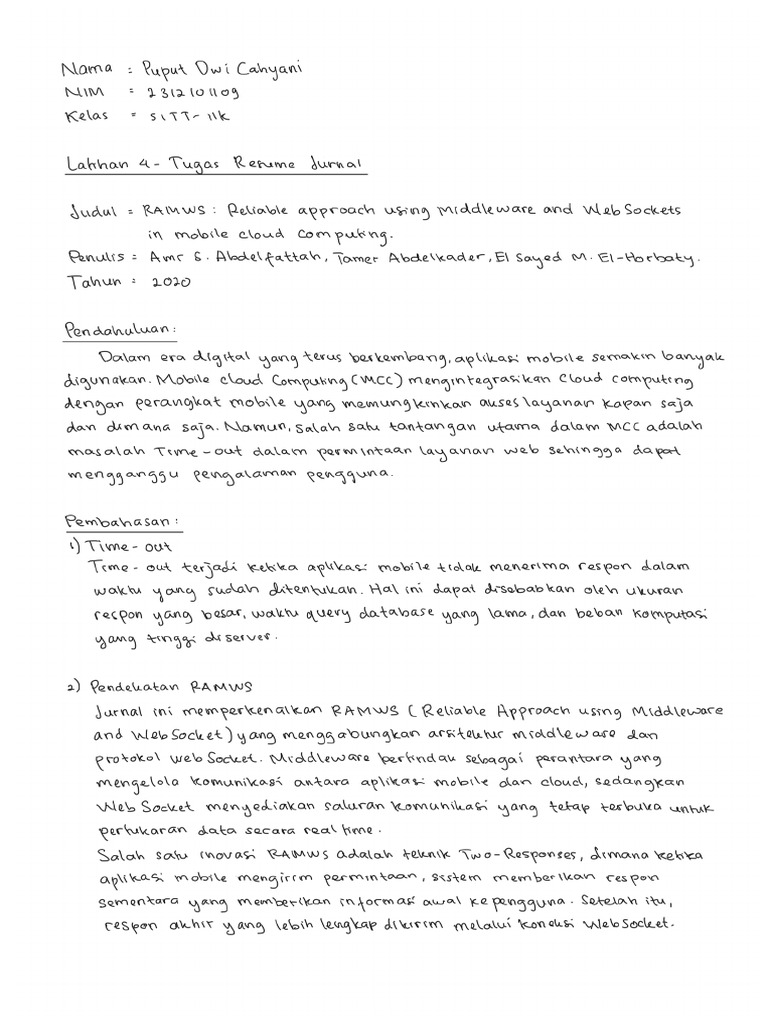 Nama : Puput Dwi Cahyani
NIM = 2312101109
Kelas = SITT-11K
Latihan 4 - Tugas Resume Jurnal
Judul = RAMWS : Reliable approach using Middleware and WebSockets
in mobile cloud computing.
Penulis = Amr S. Abdelfattah, Tamer Abdelkader, El Sayed M. El-Horbaty.
Tahun : 2020
Pendahuluan :
Dalam era digital yang terus berkembang, aplikasi mobile semakin banyak
digunakan. Mobile Cloud Computing (MCC) mengintegrasikan Cloud computing
dengan perangkat mobile yang memungkinkan akses layanan kapan saja
dan dimana saja. Namun, salah satu tantangan utama dalam MCC adalah
masalah Time-out dalam permintaan layanan web sehingga dapat
mengganggu pengalaman pengguna.
Pembahasan :
1) Time-out
Time-out terjadi ketika aplikasi mobile tidak menerima respon dalam
waktu yang sudah ditentukan. Hal ini dapat disebabkan oleh ukuran
respon yang besar, waktu query database yang lama, dan beban komputasi
yang tinggi diserver.
2) Pendekatan RAMWS
Jurnal ini memperkenalkan RAMWS ( Reliable Approach using Middleware
and WebSocket) yang menggabungkan arsitektur middleware dan
protokol webSocket. Middleware bertindau sebagai perantara yang
mengelola komunikasi antara aplikasi mobile dan cloud, sedangkan
WebSocket menyediakan saluran komunikasi yang tetap terbuka untuk
pertukaran data secara realtime.
Salah satu inovasi RAMWS adalah teknik Two-Responses, dimana ketika
aplikasi mobile mengirim permintaan, sistem memberikan respon
sementara yang memberikan informasi awal kepengguna. Setelah itu,
respon akhir yang lebih lengkap dikirim melalui koneksi WebSocket.